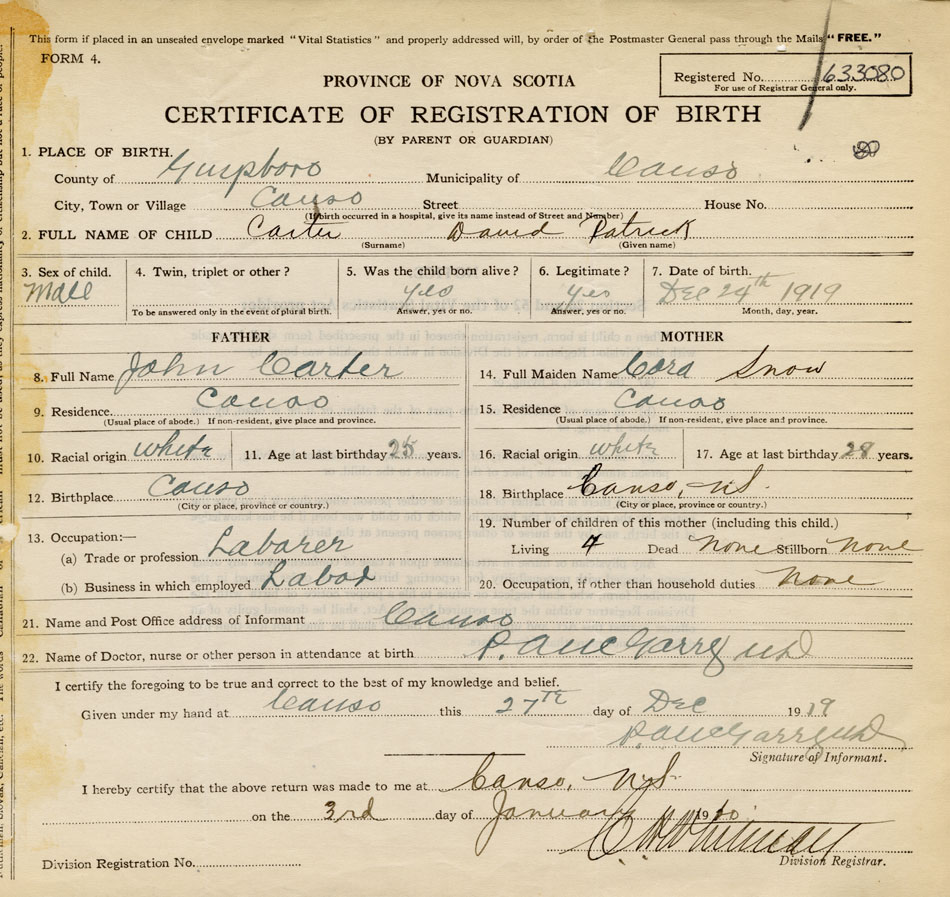 This form if placed in an unsealed envelope marked "Vital Statistics" and properly addressed will, by order of the Postmaster General pass through the Mails "FREE."
FORM 4.
Registered No. 633080
For use of Registrar General only.
PROVINCE OF NOVA SCOTIA
CERTIFICATE OF REGISTRATION OF BIRTH
(BY PARENT OR GUARDIAN)
1. PLACE OF BIRTH.
County of Guysboro Municipality of Canso
City, Town or Village Canso Street House No.
(If birth occurred in a hospital, give its name instead of Street and Number)
2. FULL NAME OF CHILD Carter David Patrick
(Surname) (Given name)
3. Sex of child. 4. Twin, triplet or other? 5. Was the child born alive? 6. Legitimate? 7. Date of birth.
Male yes yes Dec 24th 1919
To be answered only in the event of plural birth. Answer, yes or no. Answer, yes or no. Month, day, year.
FATHER MOTHER
8. Full Name John Carter 14. Full Maiden Name Cora Snow
9. Residence. Canso 15. Residence Canso
(Usual place of abode.) If non-resident, give place and province. (Usual place of abode.) If non-resident, give place and province.
10. Racial origin white 11. Age at last birthday 25 years. 16. Racial origin white 17. Age at last birthday 28 years.
12. Birthplace Canso 18. Birthplace Canso, NS.
(City or place, province or country.) (City or place, province or country.)
13. Occupation:— 19. Number of children of this mother (including this child.)
(a) Trade or profession Labarer Living 4 Dead None Stillborn none
(b) Business in which employed Labor 20. Occupation, if other than household duties None
21. Name and Post Office address of Informant Canso
22. Name of Doctor, nurse or other person in attendance at birth P. A McGarry MD
I certify the foregoing to be true and correct to the best of my knowledge and belief.
Given under my hand at Canso this 27TH day of Dec 1919
P. A McGarry MD
Signature of Informant.
I hereby certify that the above return was made to me at Canso, NS
on the 3rd day of January 1920
Whitman
Division Registration No. Division Registrar.